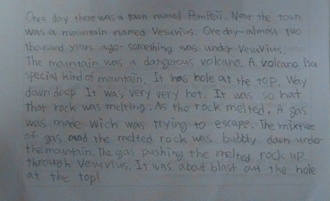 One day there was a town named Pompeii. Near the town
was a mountain named Vesuvius. One day almost two
thousand years ago something was under Vesuvius.
The mountain was a dangerous volcano. A volcano is a
special kind of mountain. It has hole at the top. Way
down deep It was very very hot. It was so hot
that rock was melting. As the rock melted, A gas
was made wich was trying to escape. The mixture
of gas and the melted rock was bubbly down under
the mountain. The gas pushing the melted rock up
through Vesuvius. It was about blast out the hole
at the top!